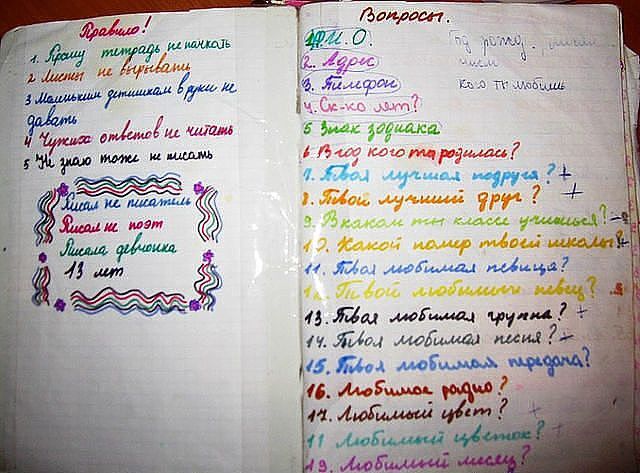 Правило!
1. Прошу тетрадь не пачкать
2 Листы не вырывать
3 Маленьким детишкам в руки не
давать
4 Чужих ответов не читать
5 Не знаю тоже не писать
Писал не писатель
Писал не поэт
Писала девчонка
13 лет
Вопросы.
1 Ф.И.О.
Год рожд.
2. Адрес
3. Телефон
кого ты любишь
4. Ск-ко лет?
5 Знак зодиака
6 В год кого ты родилась?
7. Твоя лучшая подруга? +
8. Твой лучший друг? +
9. В каком ты классе учишься?
10. Какой номер твоей школы?
11. Твоя любимая певица?
12. Твой любимый певец?
13. Твоя любимая группа? +
14. Твоя любимая песня? +
15. Твоя любимая передача?
16. Любимое радио?
17. Любимый цвет? +
11 Любимый цветок? +
19. Любимый месяц?